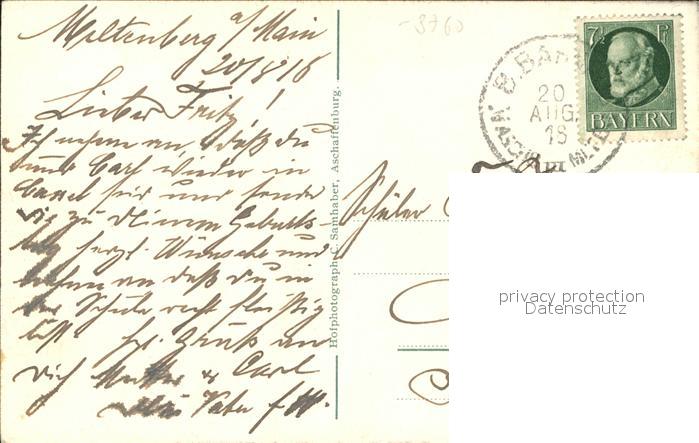 Miltenberg a/Main
20/8 16
Lieber Fritz!
Ich nehme an, daß du
und Carl wieder in
Cassel seid und sende
dir zu deinem Geburts-
tag herzl. Wünsche und
nehme an daß du in
der Schule recht fleißig
bist. hzl. Gruß an
dich Mutter & Carl
dein Vater f/W.
Hofphotograph C. Samhaber, Aschaffenburg.
Schüler
3760
7½ Pf
BAYERN
K. B. BAHNPOST
20
AUG.
16
ASCHAFF. MILTEN
privacy protection
Datenschutz